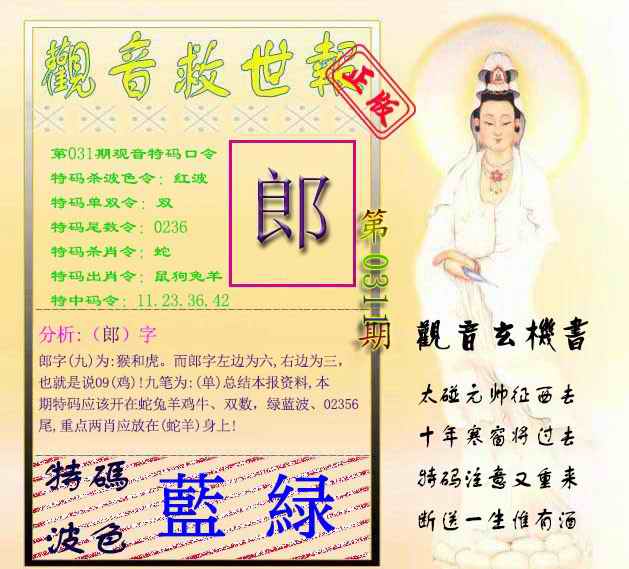 觀音救世報
正版
第031期观音特码口令
特码杀波色令：红波
特码单双令：双
特码尾数令：0236
特码杀肖令：蛇
特码出肖令：鼠狗兔羊
特中码令：11.23.36.42
郎
第0311期
分析：（郎）字
郎字(九)为:猴和虎。而郎字左边为六,右边为三,
也就是说09(鸡)!九笔为:(单)总结本报资料,本
期特码应该开在蛇兔羊鸡牛、双数，绿蓝波、02356
尾,重点两肖应放在(蛇羊)身上!
特碼
波色
藍 緑
觀音玄機書
太碰元帅征西去
十年寒窗将过去
特码注意又重来
断送一生惟有酒